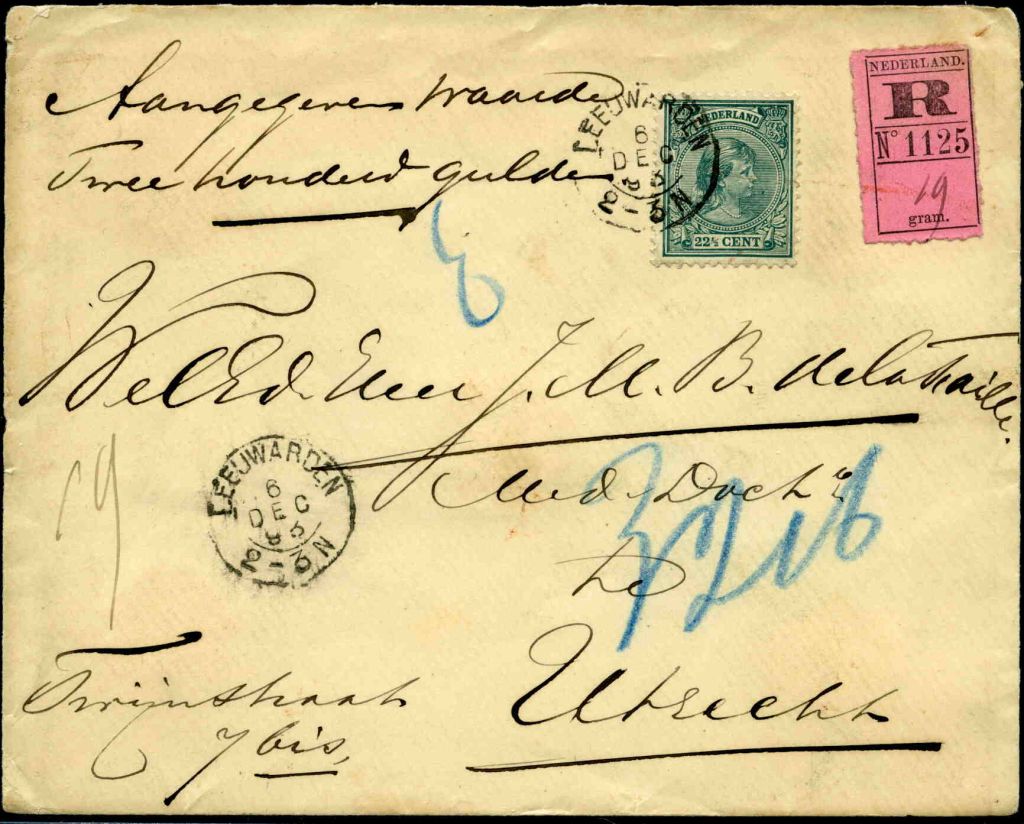 Aangegeven waarde
Twee honderd gulden
LEEUWARDEN
6
DEC
93
2-3N
NEDERLAND
22½ CENT
NEDERLAND.
R
No 1125
19
gram.
WelEd. Heer J. M. B.
Med. Doct.
te
Utrecht
LEEUWARDEN
6
DEC
93
2-3N
19
Twijnstraat
7 bis,